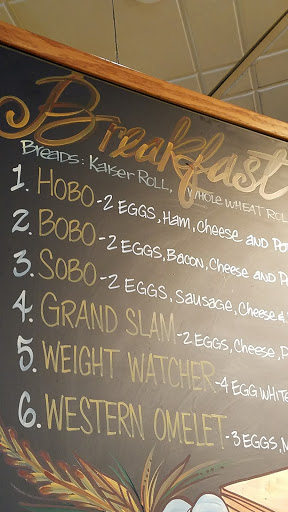 Breakfast
Breads: Kaiser Roll, Whole Wheat Rol
1. HOBO - 2 EGGS, Ham, Cheese and Po
2. BOBO - 2 EGGS, Bacon, Cheese and P
3. SOBO - 2 EGGS, Sausage, Cheese &
4. GRAND SLAM - 2 Eggs, Cheese, P
5. WEIGHT WATCHER - 4 EGG WHITE
6. WESTERN OMELET - 3 EGGS,